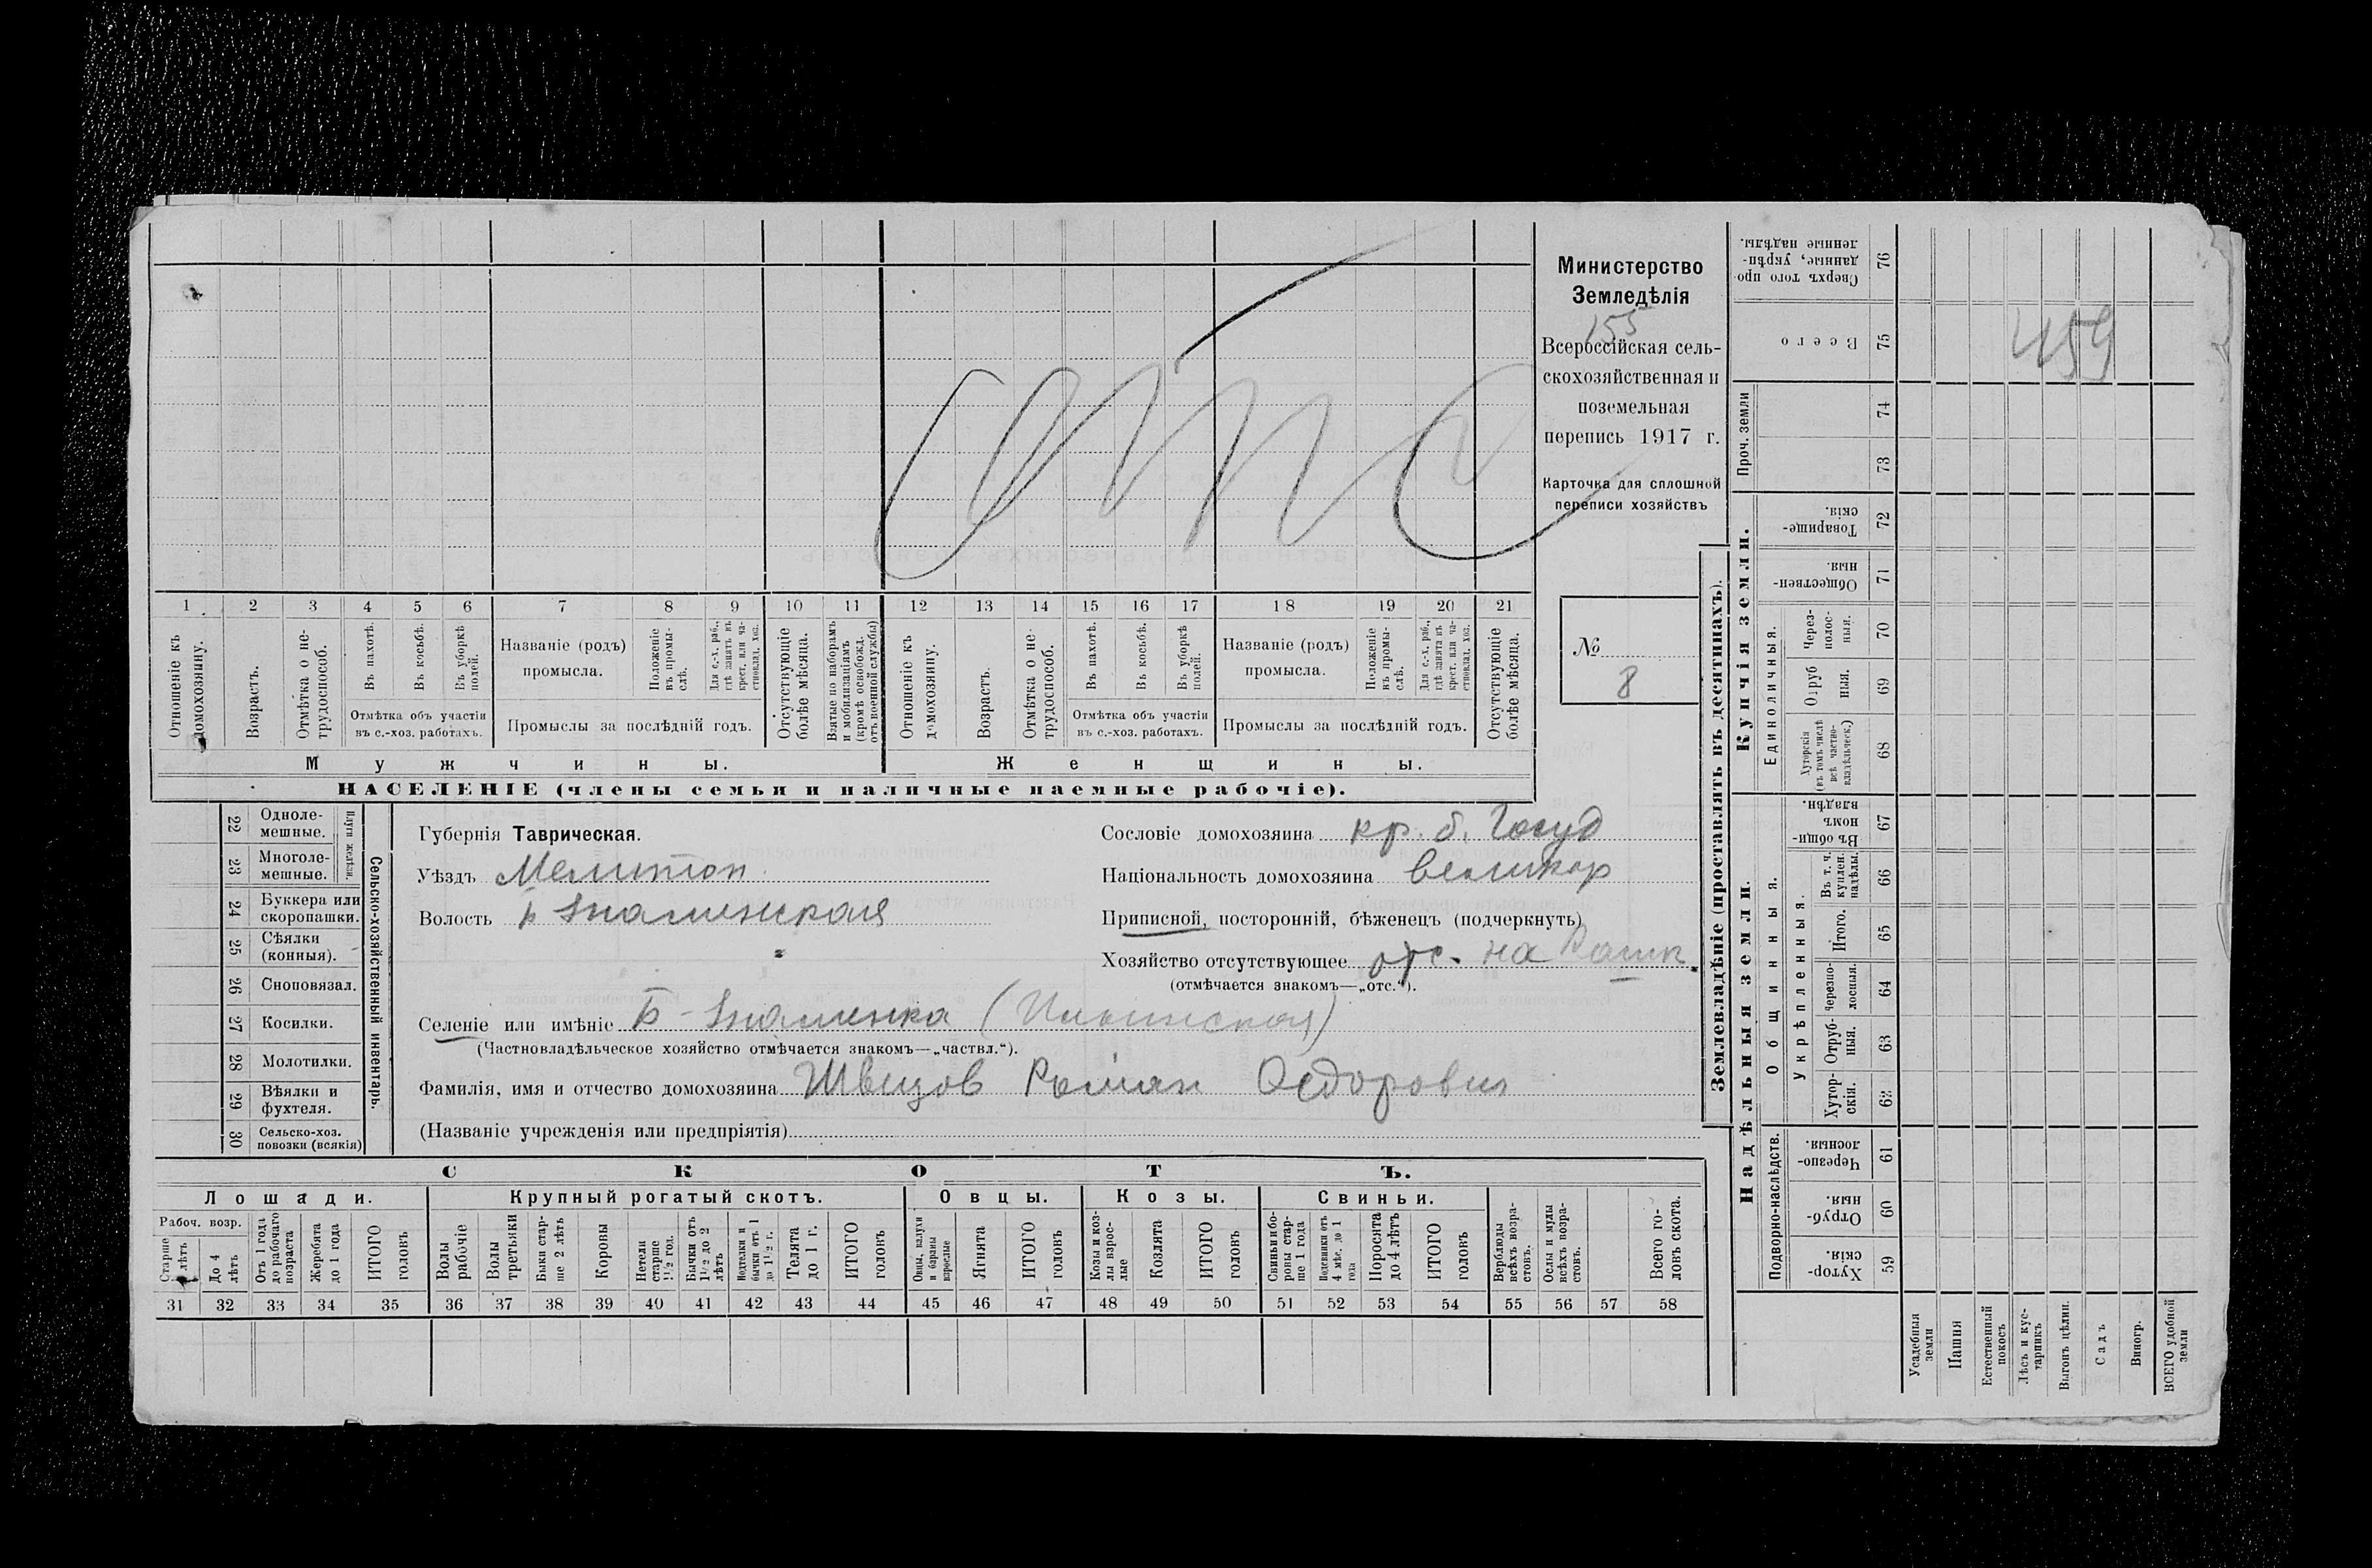 Министерство
Земледѣлія
155
Всероссійская сель-
скохозяйственная и
поземельная
перепись 1917 г.
Карточка для сплошной
переписи хозяйствъ
№
8
отс
1 2 3 4 5 6 7 8 9 10 11 12 13 14 15 16 17 18 19 20 21
Отношеніе къ домохозяину.
Возрастъ.
Отмѣтка о не-трудоспособ.
Въ пахотѣ.
Въ косьбѣ.
Въ уборкѣ полей.
Отмѣтка объ участіи
въ с.-хоз. работахъ.
Названіе (родъ)
промысла.
Положеніе въ промы-слѣ.
Для с.-х. раб., гдѣ занятъ въ крест. или ча-стновлад. хоз.
Промыслы за послѣдній годъ.
Отсутствующіе болѣе мѣсяца.
Взятые по наборамъ и мобилизаціямъ (кромѣ освобожд. отъ военной службы)
Отношеніе къ домохозяину.
Возрастъ.
Отмѣтка о не-трудоспособ.
Въ пахотѣ.
Въ косьбѣ.
Въ уборкѣ полей.
Отмѣтка объ участіи
въ с.-хоз. работахъ.
Названіе (родъ)
промысла.
Положеніе въ промы-слѣ.
Для с.-х. раб., гдѣ занята въ крест. или ча-стновлад. хоз.
Промыслы за послѣдній годъ.
Отсутствующіе болѣе мѣсяца.
Мужчины. Женщины.
НАСЕЛЕНІЕ (члены семьи и наличные наемные рабочіе).
22 Одноле-мешные.
23 Многоле-мешные.
Плуги желѣзн.
24 Буккера или скоропашки.
25 Сѣялки (конныя).
26 Сноповязал.
27 Косилки.
28 Молотилки.
29 Вѣялки и фухтеля.
30 Сельско-хоз. повозки (всякія)
Сельско-хозяйственный инвентарь.
Губернія Таврическая.
Уѣздъ Мелитоп.
Волость Б Знаменская
Сословіе домохозяина кр. б. Госуд
Національность домохозяина великор
Приписной, посторонній, бѣженецъ (подчеркнуть)
Хозяйство отсутствующее отс. на
(отмѣчается знакомъ—„отс.“).
Селеніе или имѣніе Б-Знаменка
(Частновладѣльческое хозяйство отмѣчается знакомъ—„частвл.“).
Фамилія, имя и отчество домохозяина Швецов Роман Федорович
(Названіе учрежденія или предпріятія)
СКОТЪ.
Лошади. Крупный рогатый скотъ. Овцы. Козы. Свиньи.
Рабоч. возр.
Старше лѣтъ
До 4 лѣтъ
Отъ 1 года до рабочаго возраста
Жеребята до 1 года
ИТОГО головъ
Волы рабочіе
Волы третьяки
Быки стар-ше 2 лѣтъ
Коровы
Нетели старше 1½ год.
Бычки отъ 1½ до 2 лѣтъ
Подтелки и бычки отъ 1 до 1½ г.
Телята до 1 г.
ИТОГО головъ
Овцы, валухи и бараны взрослые
Ягнята
ИТОГО головъ
Козы и коз-лы взрос-лые
Козлята
ИТОГО головъ
Свиньи и бо-ровы стар-ше 1 года
Подсвинки отъ 4 мѣс. до 1 года
Поросята до 4 лѣтъ
ИТОГО головъ
Верблюды всѣхъ возра-стовъ.
Ослы и мулы всѣхъ возра-стовъ.
Всего го-ловъ скота.
31 32 33 34 35 36 37 38 39 40 41 42 43 44 45 46 47 48 49 50 51 52 53 54 55 56 57 58
Землевладѣніе (проставлять въ десятинахъ).
Купчія земли.
Надѣльныя земли.
Сверхъ того про-данные, укрѣп-ленные надѣлы. 76
Всего 75
459
Проч. земли 74
73
Товарище-скія. 72
Обществен-ныя. 71
Единоличныя.
Через-полос-ныя. 70
Отруб ныя. 69
Хуторскія (въ томъ числѣ всѣ частно-владѣльческ.) 68
Въ общин-номъ владѣн. 67
Общинныя.
Укрѣпленныя.
Въ т. ч. куплен. надѣлы. 66
Итого. 65
Черезпо-лосныя. 64
Отруб-ныя. 63
Хутор-скія. 62
Подворно-наслѣдств.
Черезпо-лосныя. 61
Отруб-ныя. 60
Хутор-скія. 59
Усадебныя земли
Пашня
Естественный покосъ
Лѣсъ и кус-тарникъ
Выгонъ цѣлин.
Садъ
Виногр.
ВСЕГО удобной земли